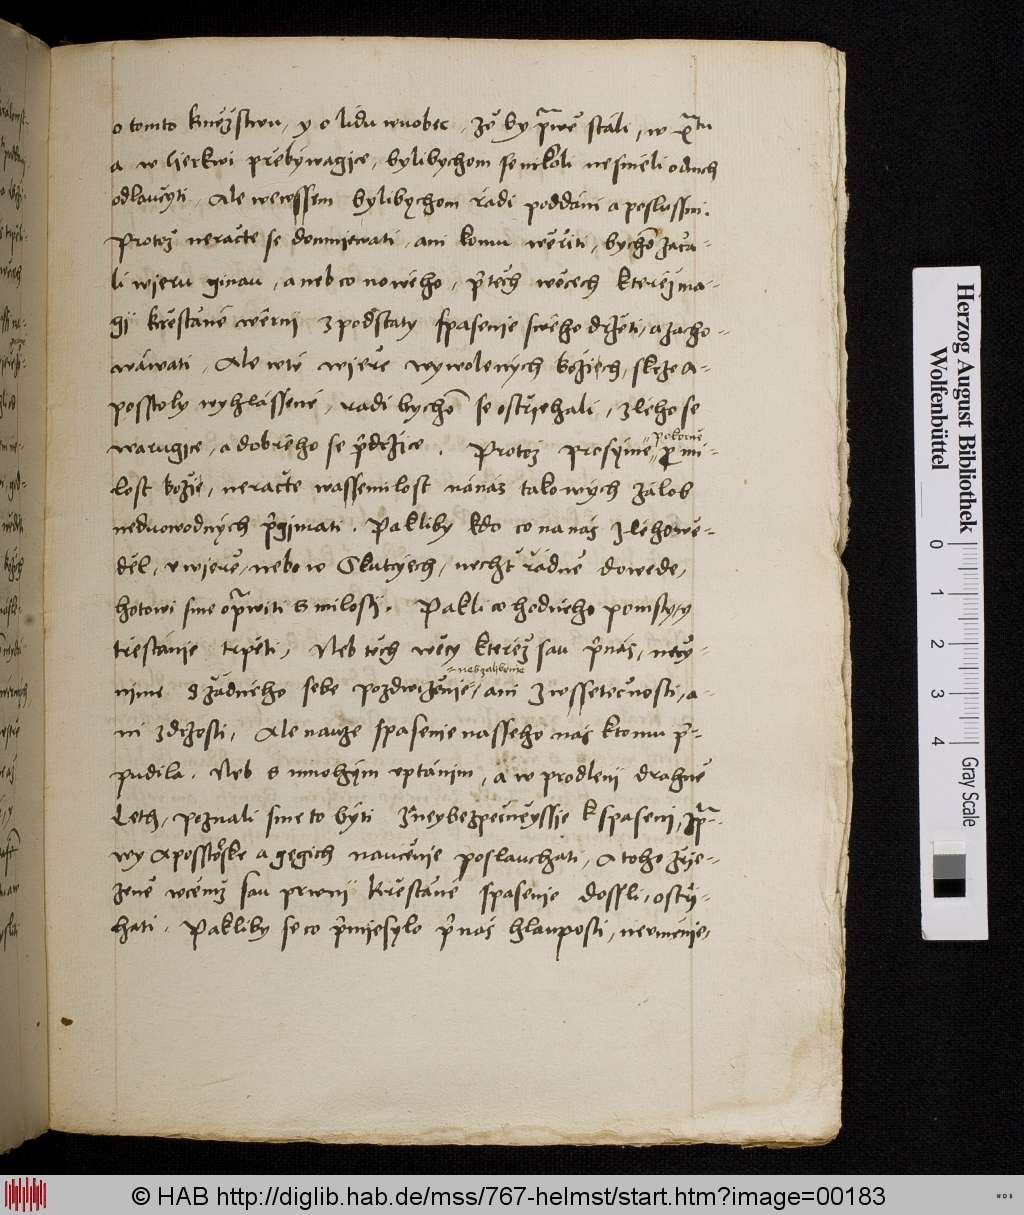 o tomto kniezstwu, y o lidu wuobec, že by prwe stáli, w prau
a w Cierkwi přebýwagice, bylibychom se nikoli nesměli od nich
odlaučyti, Ale wewssem bylibychom rádi poddáni a poslussni.
Protož neračte se domniewati, ani komu wěřiti, bychō zača-
li wieru ginau, aneb co nowého, při těch wěcech kteréž ma-
gij křěstiané wěrnij z podstaty spasenie swého držěti, a zacho-
wáwati, Ale w té wieře wywolených božiech, skrze A-
posstoly wyhlássené, rádi bychō se ostřiehali, zlého se
warugice, a dobrého se přidržice. Protož prosyme pokorně pro mi-
lost božie, neračte wassemilost na nás takowých žálob
neduowodných přigimati. Pakliby kdo co na nás zlého wě-
děl, u wieře, nebo w Skutcyech, nechť řádně dowede,
hotowi sme oprawiti s milostij. Pakli co hodného pomsty, y
trestánie trpěti, Neb těch wěcy kteréž sau při nás, nečy-
nime z žádného sebe pozdwiženie, neb zalibenie ani z wssetečnosti, a-
ni z drzosti, Ale nauze spasenie nasseho nás k tomu při-
pudila. Neb s mnohým uptánim, a w prodlenij drahně
Leth, poznali sme to býti zneybezpečněyssie k spasenij, zpra-
wy Aposstolské a gegich naučenie poslauchati, A toho zřie-
zené w čemž sau prwnij křěstiané spasenie dossli, ostřij-
hati. Pakliby se co přimiesylo při nás hlauposti, neuměnie,
Herzog August Bibliothek
Wolfenbüttel
0 1 2 3 4
Gray Scale
© HAB http://diglib.hab.de/mss/767-helmst/start.htm?image=00183